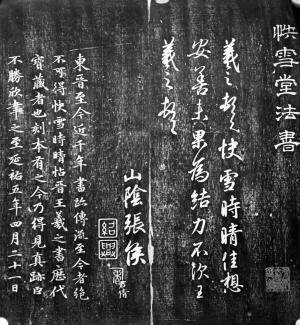 快雪堂法書
羲之頓首快雪時晴佳想
安善未果為結力不次王
羲之頓首
山陰張侯
紹興
東晉至今近千年書跡傳流至今者絕
不可得快雪時晴帖晉王羲之書歷代
寶藏者也刻本有之今乃得見真跡臣
不勝欣幸之至延祐五年四月二十一日